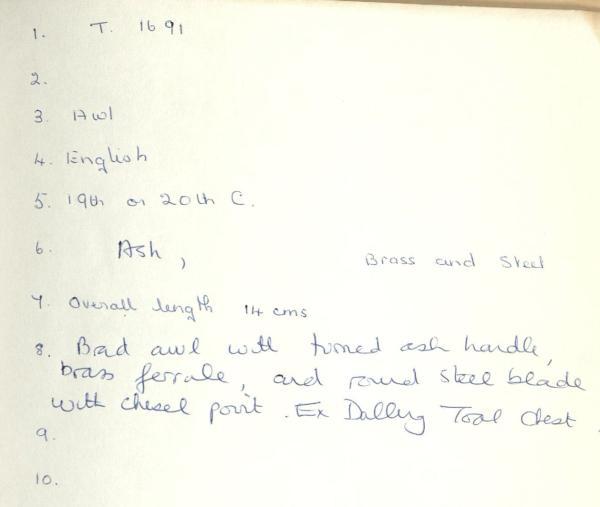 1. T. 1691
2.
3. Awl
4. English
5. 19th or 20th C.
6. Ash, Brass and Steel
7. Overall length 14 cms
8. Brad awl with turned ash handle,
brass ferrule, and round steel blade
with chisel point. Ex Dalling Tool Chest.
9.
10.